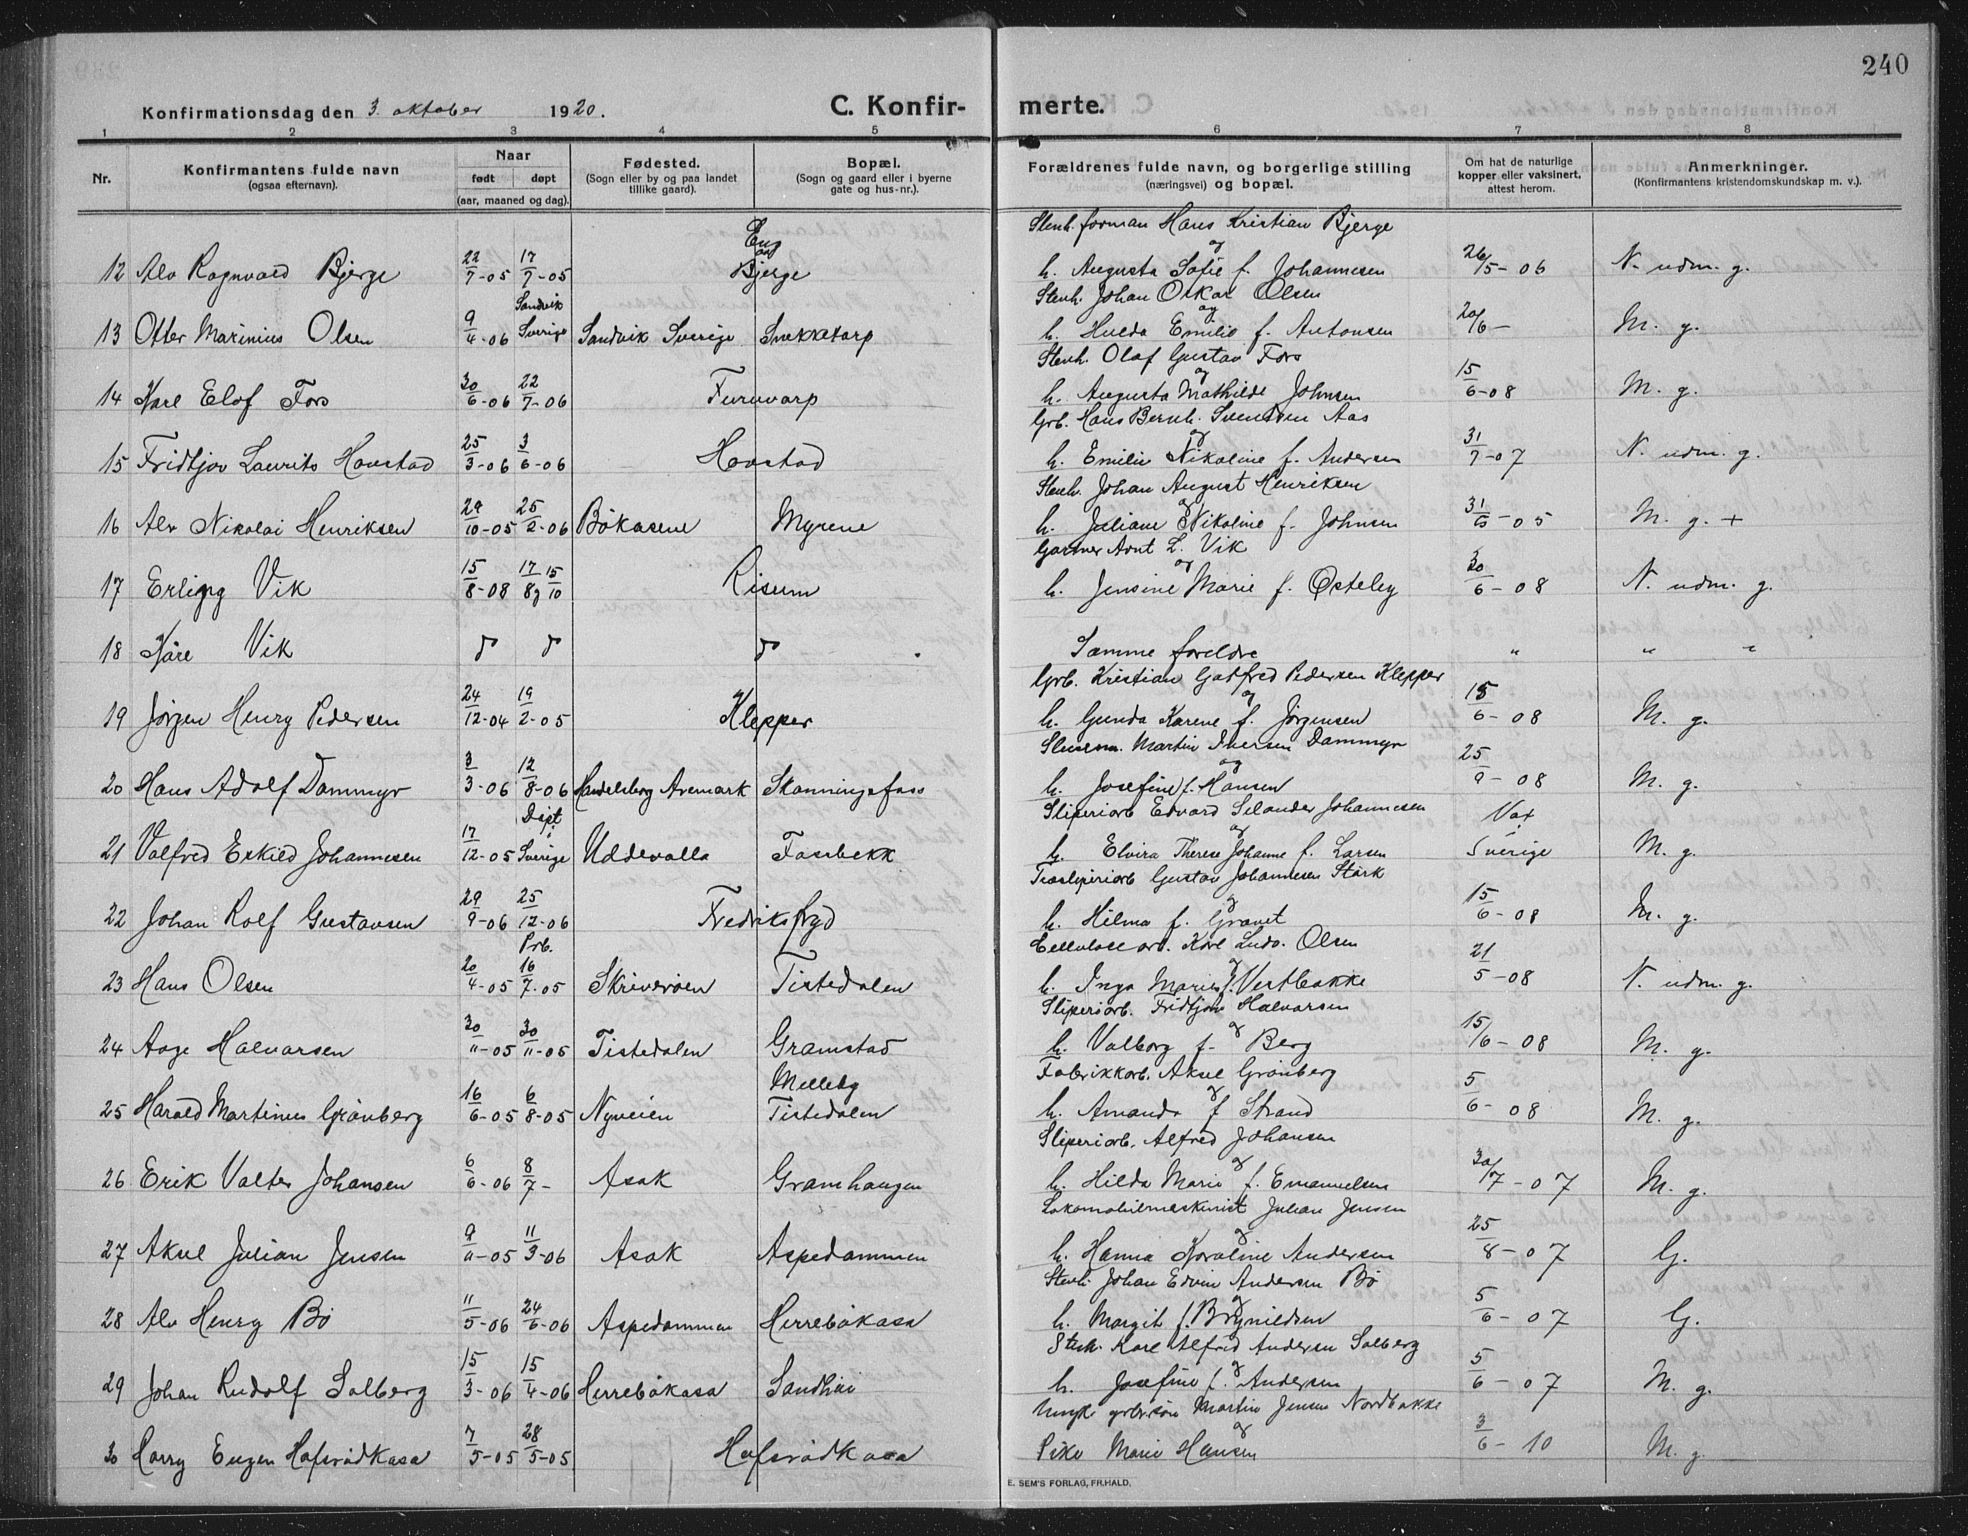 240
Konfirmationsdag den 3. oktober 1920.
C. Konfir-
merte.
1 2 3 4 5 6 7 8
Nr.
Konfirmantens fulde navn
(ogsaa efternavn).
Naar
født døpt
(aar, maaned og dag).
Fødested.
(Sogn eller by og paa landet
tillike gaard).
Bopæl.
(Sogn og gaard eller i byerne
gate og hus-nr.).
Forældrenes fulde navn, og borgerlige stilling
(næringsvei) og bopæl.
Om hat de naturlige
kopper eller vaksinert,
attest herom.
Anmerkninger.
(Konfirmantens kristendomskundskap m. v.).
Stenh. forman Hans Kristian Bjerge
Eng
og og
12 Alv Ragnvald Bjerge 22/7-05 17/9-05 Bjerge h. Augusta Sofie f. Johannesen 26/5-06 N. udm. g.
Sandvik Stenh. Johan Oskar Olsen
og
13 Otter Marinius Olsen 9/4-06 Sverige Sandvik Sverige Snekketorp h. Hulda Emilie f. Antonsen 20/6- M. g.
Stenh. Olaf Gustav Fors
og
14 Karl Elof Fors 30/6-06 22/7-06 Furuvarp h. Augusta Mathilde Johnsen 15/6-08 M. g.
Grb. Hans Bernh. Svendsen Aas
og
15 Fridtjov Laurits Hovstad 25/3-06 3/6-06 Hovstad h. Emilie Nikoline f. Andersen 31/7-07 N. udm. g.
Stenh. Johan August Henriksen
og
16 Alv Nikolai Henriksen 29/10-05 25/2-06 Bökasene Myrene h. Juliane Nikoline f. Johnsen 31/5-05 M. g. +
Gartner Arnt L. Vik
og
17 Erling Vik 15/8-08 17/8 g 15/10 Risum h. Jensine Marie f. Østeby 30/6-08 N. udm. g.
18 Kåre Vik d d d Samme foreldre " " "
Grb. Kristian Gotfred Pedersen Klepper
og
19 Jørgen Henry Pedersen 24/12-04 19/2-05 Klepper h. Gunda Karene f. Jørgensen 15/6-08 M. g.
Slusem. Martin Iversen Dammyr
og
20 Hans Adolf Dammyr 3/3-06 12/8-06 Handelsberg Aremark Skonningsfoss h. Josefine f. Hansen 25/9-08 M. g.
Døpt Sliperiarb Edvard Selander Johannesen Vax
i og
21 Valfred Eskild Johannesen 17/12-05 Sverige Uddevalla Fossbekk h. Elvira Therese Johanne f. Larsen Sverige M. g.
Træsliperiarb Gustav Johannesen Stark
og
22 Johan Rolf Gustavsen 29/9-06 25/12-06 Fredriksfryd h. Hilma f. Gravet 15/6-08 M. g.
Prb. Cellulose arb. Karl Ludv. Olsen
og
23 Hans Olsen 20/4-05 16/7-05 Skriverøen Tistedalen h. Inga Marie f. Vestbakke 21/5-08 N. udm. g.
Sliperiarb. Fridtjov Halvarsen
og
24 Aage Halvarsen 30/11-05 30/11-05 Tistedalen Gramstad h. Valborg f. Berg 15/6-08 M. g.
Melleby Fabrikkarb. Aksel Grönberg
og
25 Harald Martinus Grönberg 16/6-05 6/8-05 Nyveien Tistedalen h. Amanda f Strand 5/6-08 M. g.
Sliperiarb. Alfred Johansen
og
26 Erik Valter Johansen 6/6-06 8/7- Asak Gramhaugen h. Hilda Marie f. Emanuelsen 30/7-07 M. g.
Lokomobilmaskinist Julian Jensen
og
27 Aksel Julian Jensen 9/11-05 11/3-06 Asak Aspedammen h. Hanna Karoline Andersen 25/8-07 G.
Stenh. Johan Edvin Andersen Bö
og
28 Alv Henry Bö 11/5-06 24/6-06 Aspedammen Herrebökasa h. Margit f. Brynildsen 5/6-07 G.
Stenh. Karl Alfred Andersen Solberg
og
29 Johan Rudolf Solberg 15/3-06 15/4-06 Herrebökasa Sandhöi h. Josefine f. Andersen 5/6-07 M. g.
Ungk. grbr.søn Martin Jensen Nordbakke
og
30 Harry Eugen Hafsrødkasa 7/5-05 28/5-05 Hafsrødkasa Pike Marie Hansen 3/6-10 M. g.
E. SEM'S FORLAG, FR.HALD.